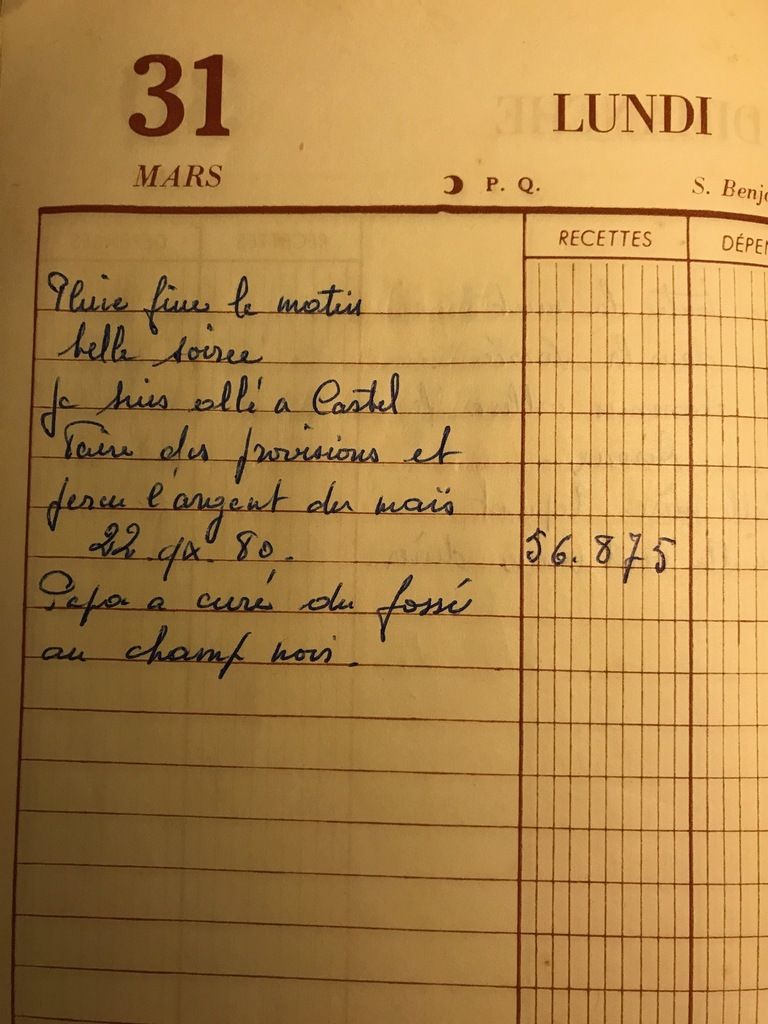 31 LUNDI
MARS P. Q. S. Benj
RECETTES DÉPEN
Pluie fine le matin
belle soiree
Je suis allé a Castel
Faire des provisions et
percu l'argent du maïs
22 qx 80. 56.875
Papa a curé du fossé
au champ noir.